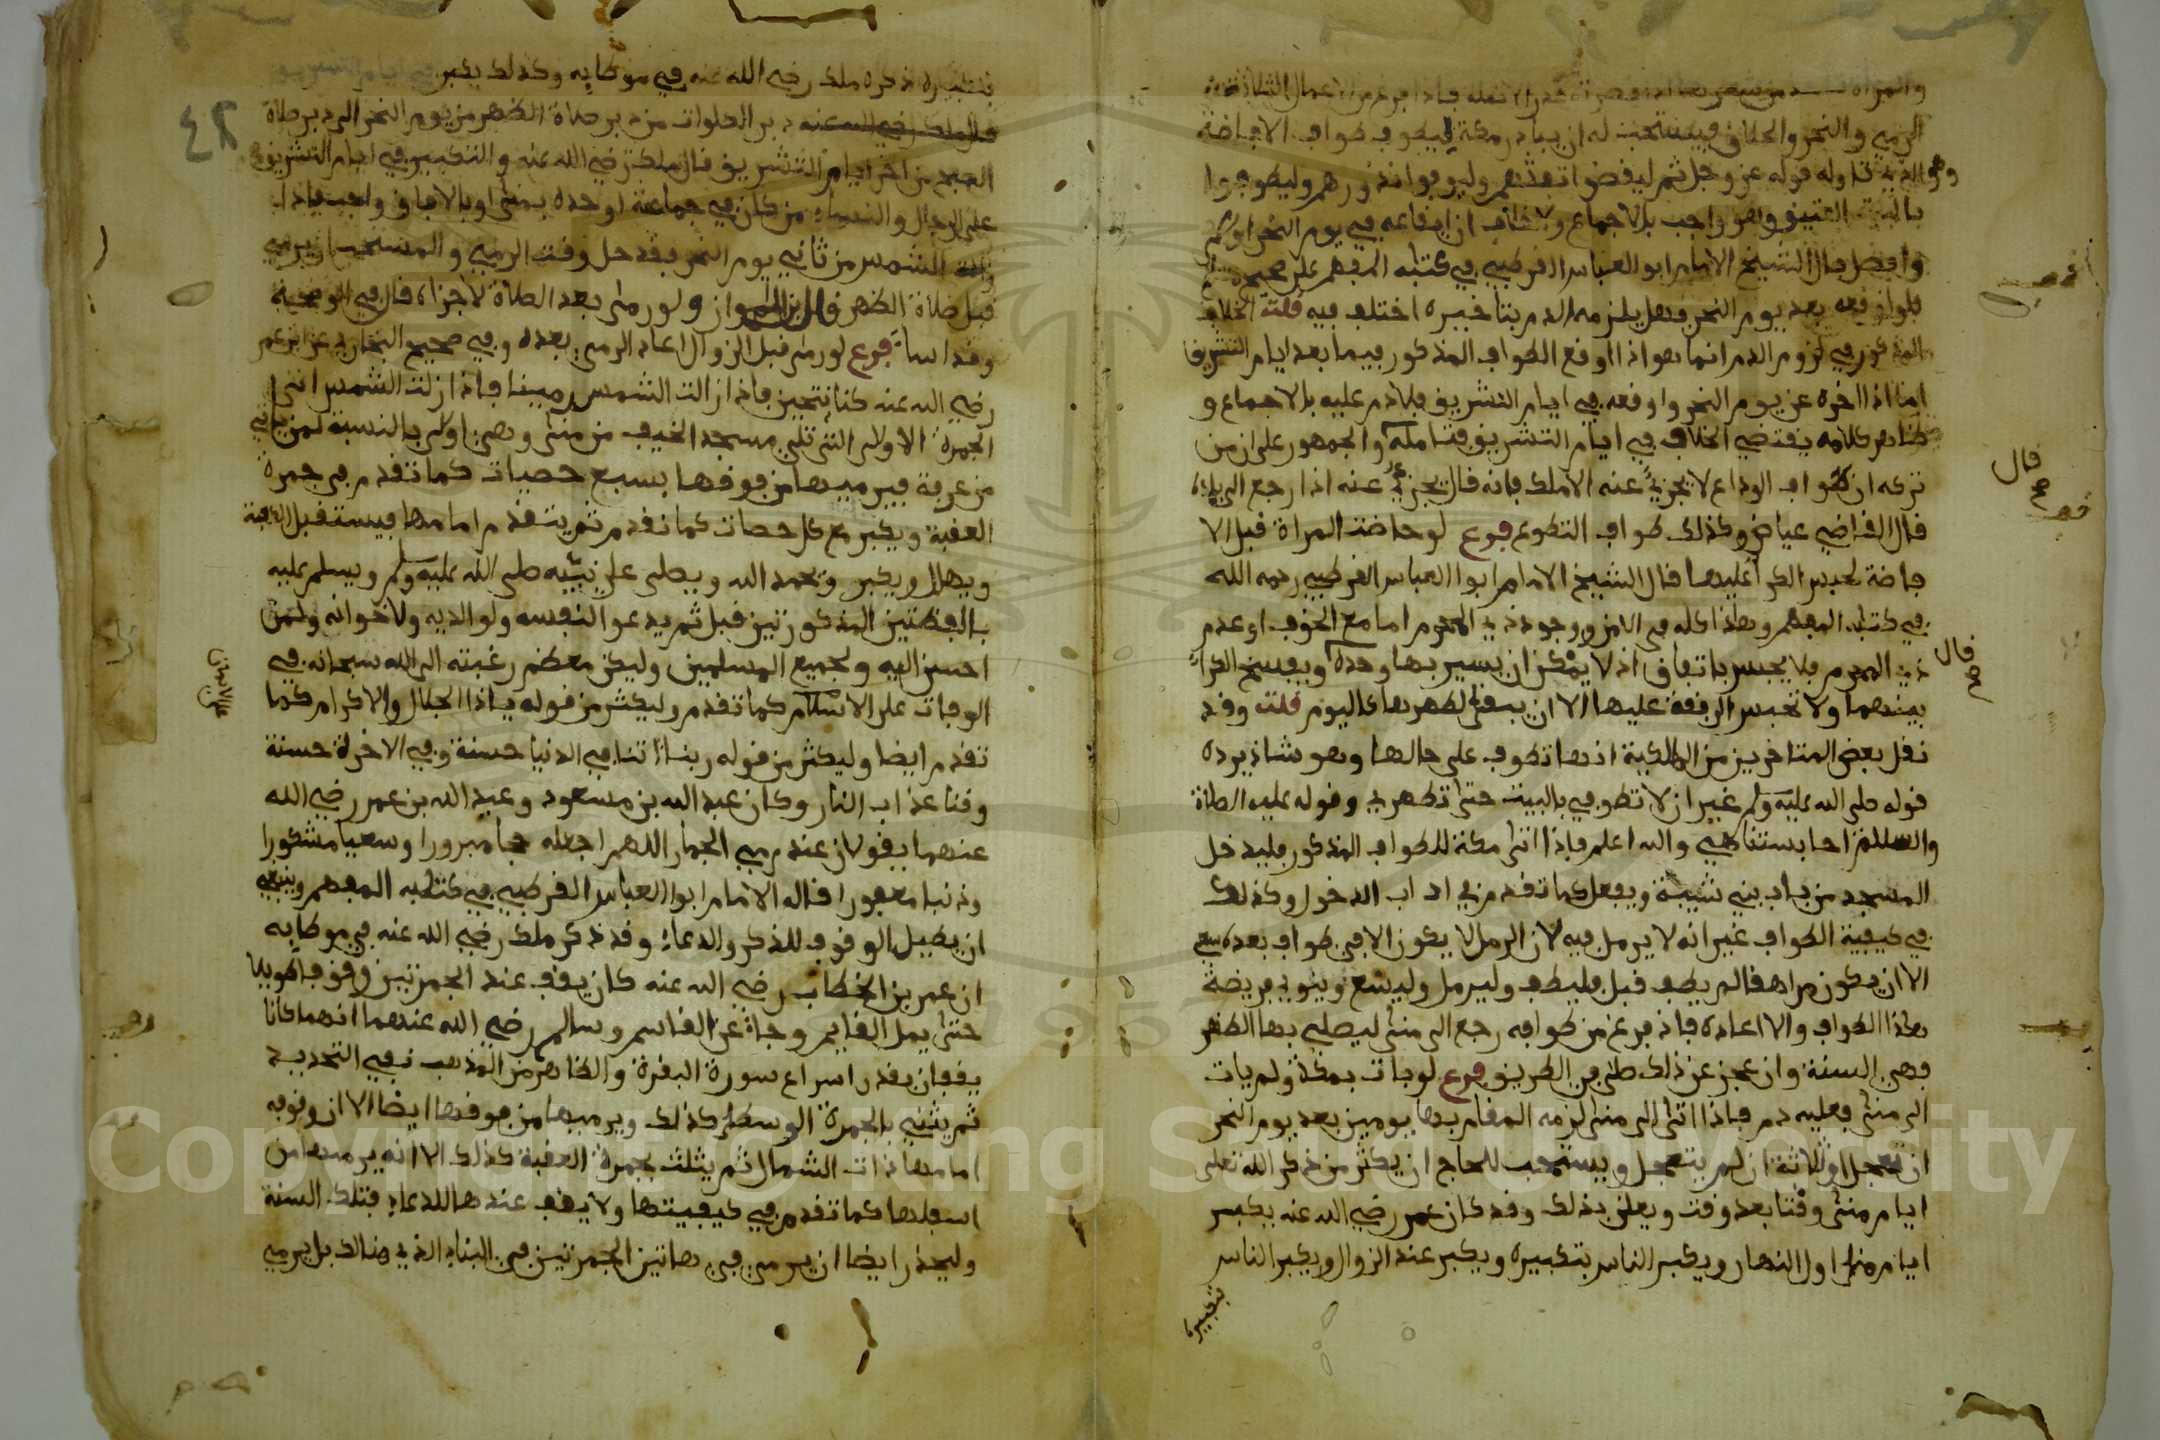 الرمي والنحر والحلاق فيستحب له ان يبادر مكة ليطوف طواف الافاضة
الذي تاوله قوله عز وجل ثم ليقضوا تفثهم وليوفوا نذورهم وليطوفوا
بالبيت العتيق وهو واجب بالاجماع ولا خلاف ان ايقاعه في يوم النحر اولى
وافضل قال الشيخ الامام ابو العباس القرطبي في كتابه المفهم على صحيح
فلو اوقعه بعد يوم النحر وهل يلزمه الدم بتاخيره اختلف فيه قلت الخلاف
المذكور في لزوم الدم انما هو اذا اوقع الطواف المذكور فيما بعد ايام التشريق
اما اذا اخره عن يوم النحر واوقعه في ايام التشريق فلا دم عليه بالاجماع و
ظاهر كلامه يقتضي الخلاف في ايام التشريق فتامله والجمهور على ان من
تركه ان طواف الوداع لا يجزئ عنه الا ملك فانه قال يجزئ عنه اذا رجع الى بلده
قال القاضي عياض وكذلك طواف التطوع فرع لو حاضت المراة قبل الا
فاضة لحبس الكرا عليها قال الشيخ الامام ابو العباس القرطبي رحمه الله
في كتابه المفهم وهذا كله في الامن ووجود ذي المحرم اما مع الخوف او عدم
ذي المحرم فلا يحبس باتفاق اذ لا يمكن ان يسير بها وحده ويفسخ الكراء
بينهما ولا تحبس الرفقة عليها الا ان يبقى لطهرها كاليوم قلت وقد
نقل بعض المتاخرين من المالكية انها تطوف على حالها وهو شاذ يرده
قوله صلى الله عليه وسلم غير ان لا تطوفي بالبيت حتى تطهري وقوله عليه الصلاة
والسلام احابستنا هي والله اعلم فاذا اتى مكة للطواف المذكور فليدخل
المسجد من باب بني شيبة ويفعل كما تقدم في اداب الدخول وكذلك
في كيفية الطواف غير انه لا يرمل فيه لان الرمل لا يكون الا في طواف بعده سعي
الا ان يكون مراهقا لم يطف قبل فليطف وليرمل وليسع وينوي فريضة
هذا الطواف والا اعاده فاذ فرغ من طوافه رجع الى منى ليصلي بها الظهر
فهي السنة وان عجز عن ذلك صلى في الطريق فرع لو بات بمكة ولم يات
الى منى فعليه دم فاذا اتى الى منى لزمه المقام بها يومين بعد يوم النحر
ان تعجل او ثلاثة ان لم يتعجل ويستحب للحاج ان يكثر من ذكر الله تعلى
ايام منى وقتا بعد وقت ويعلن بذلك وقد كان عمر رضي الله عنه يكبر
ايام منى اول النهار ويكبر الناس بتكبيره ويكبر عند الزوال ويكبر الناس
بتكبيره
وهو
قال
قال
٤٢
بتكبيره ذكره ملك رضي الله عنه في موطايه وكذلك يكبر في ايام التشريق
دبر الصلوات من دبر صلاة الظهر من يوم النحر الى دبر صلاة
الصبح من اخر ايام التشريق قال ملك رضي الله عنه والتكبير في ايام التشريق
على الرجال والنساء من كان في جماعة او وحده بمنى او بالافاق واجب فاذا
زالت الشمس من ثاني يوم النحر فقد حل وقت الرمي والمستحب ان يرمي
قبل صلاة الظهر قال ابن المواز ولو رمى بعد الصلاة لاجزاه قال في الواضحة
وقد اساء فرع لو رمى قبل الزوال اعاد الرمي بعده وفي صحيح البخاري عن ابن عمر
رضي الله عنه كنا نتحين فاذا زالت الشمس رمينا فاذا زالت الشمس اتى
الجمرة الاولى التي تلي مسجد الخيف من منى وهي اولى بالنسبة لمن ياتي
من عرفة فيرميها من فوقها بسبع حصيات كما تقدم في جمرة
العقبة ويكبر مع كل حصات كما تقدم ثم يتقدم امامها فيستقبل القبلة
ويهلل ويكبر ويحمد الله ويصلي على نبيه صلى الله عليه وسلم ويسلم عليه
باللفظتين المذكورتين قبل ثم يدعو لنفسه ولوالديه ولاخوانه ولمن
احسن اليه ولجميع المسلمين وليكن معظم رغبته الى الله سبحانه في
الوفات على الاسلام كما تقدم وليكثر من قوله ياذا الجلال والاكرام كما
تقدم ايضا وليكثر من قوله ربنا اتنا في الدنيا حسنة وفي الاخرة حسنة
وقنا عذاب النار وكان عبد الله بن مسعود وعبد الله بن عمر رضي الله
عنهما يقولان عند رمي الجمار اللهم اجعله حجا مبرورا وسعيا مشكورا
وذنبا مغفورا قاله الامام ابو العباس القرطبي في كتابه المفهم وينبغي
ان يطيل الوقوف للذكر والدعاء وقد ذكر ملك رضي الله عنه في موطايه
ان عمر بن الخطاب رضي الله عنه كان يقف عند الجمرتين وقوفا طويلا
حتى يمل القايم وجاء عن القاسم وسالم رضي الله عنهما انهما كانا
يقفان بقدر اسراع سورة البقرة والظاهر من المذهب نفي التحديد
ثم يثني بالجمرة الوسطى كذلك ويرميها من فوقها ايضا الا ان وقوفه
امامها ذات الشمال ثم يثلث بجمرة العقبة كذلك الا انه يرميها من
اسفلها كما تقدم في كيفيتها ولا يقف عندها للدعاء فتلك السنة
وليحذر ايضا ان يرمي في هاتين الجمرتين في البناء الذي هنالك بل يرمي
Copyright © King Saud University